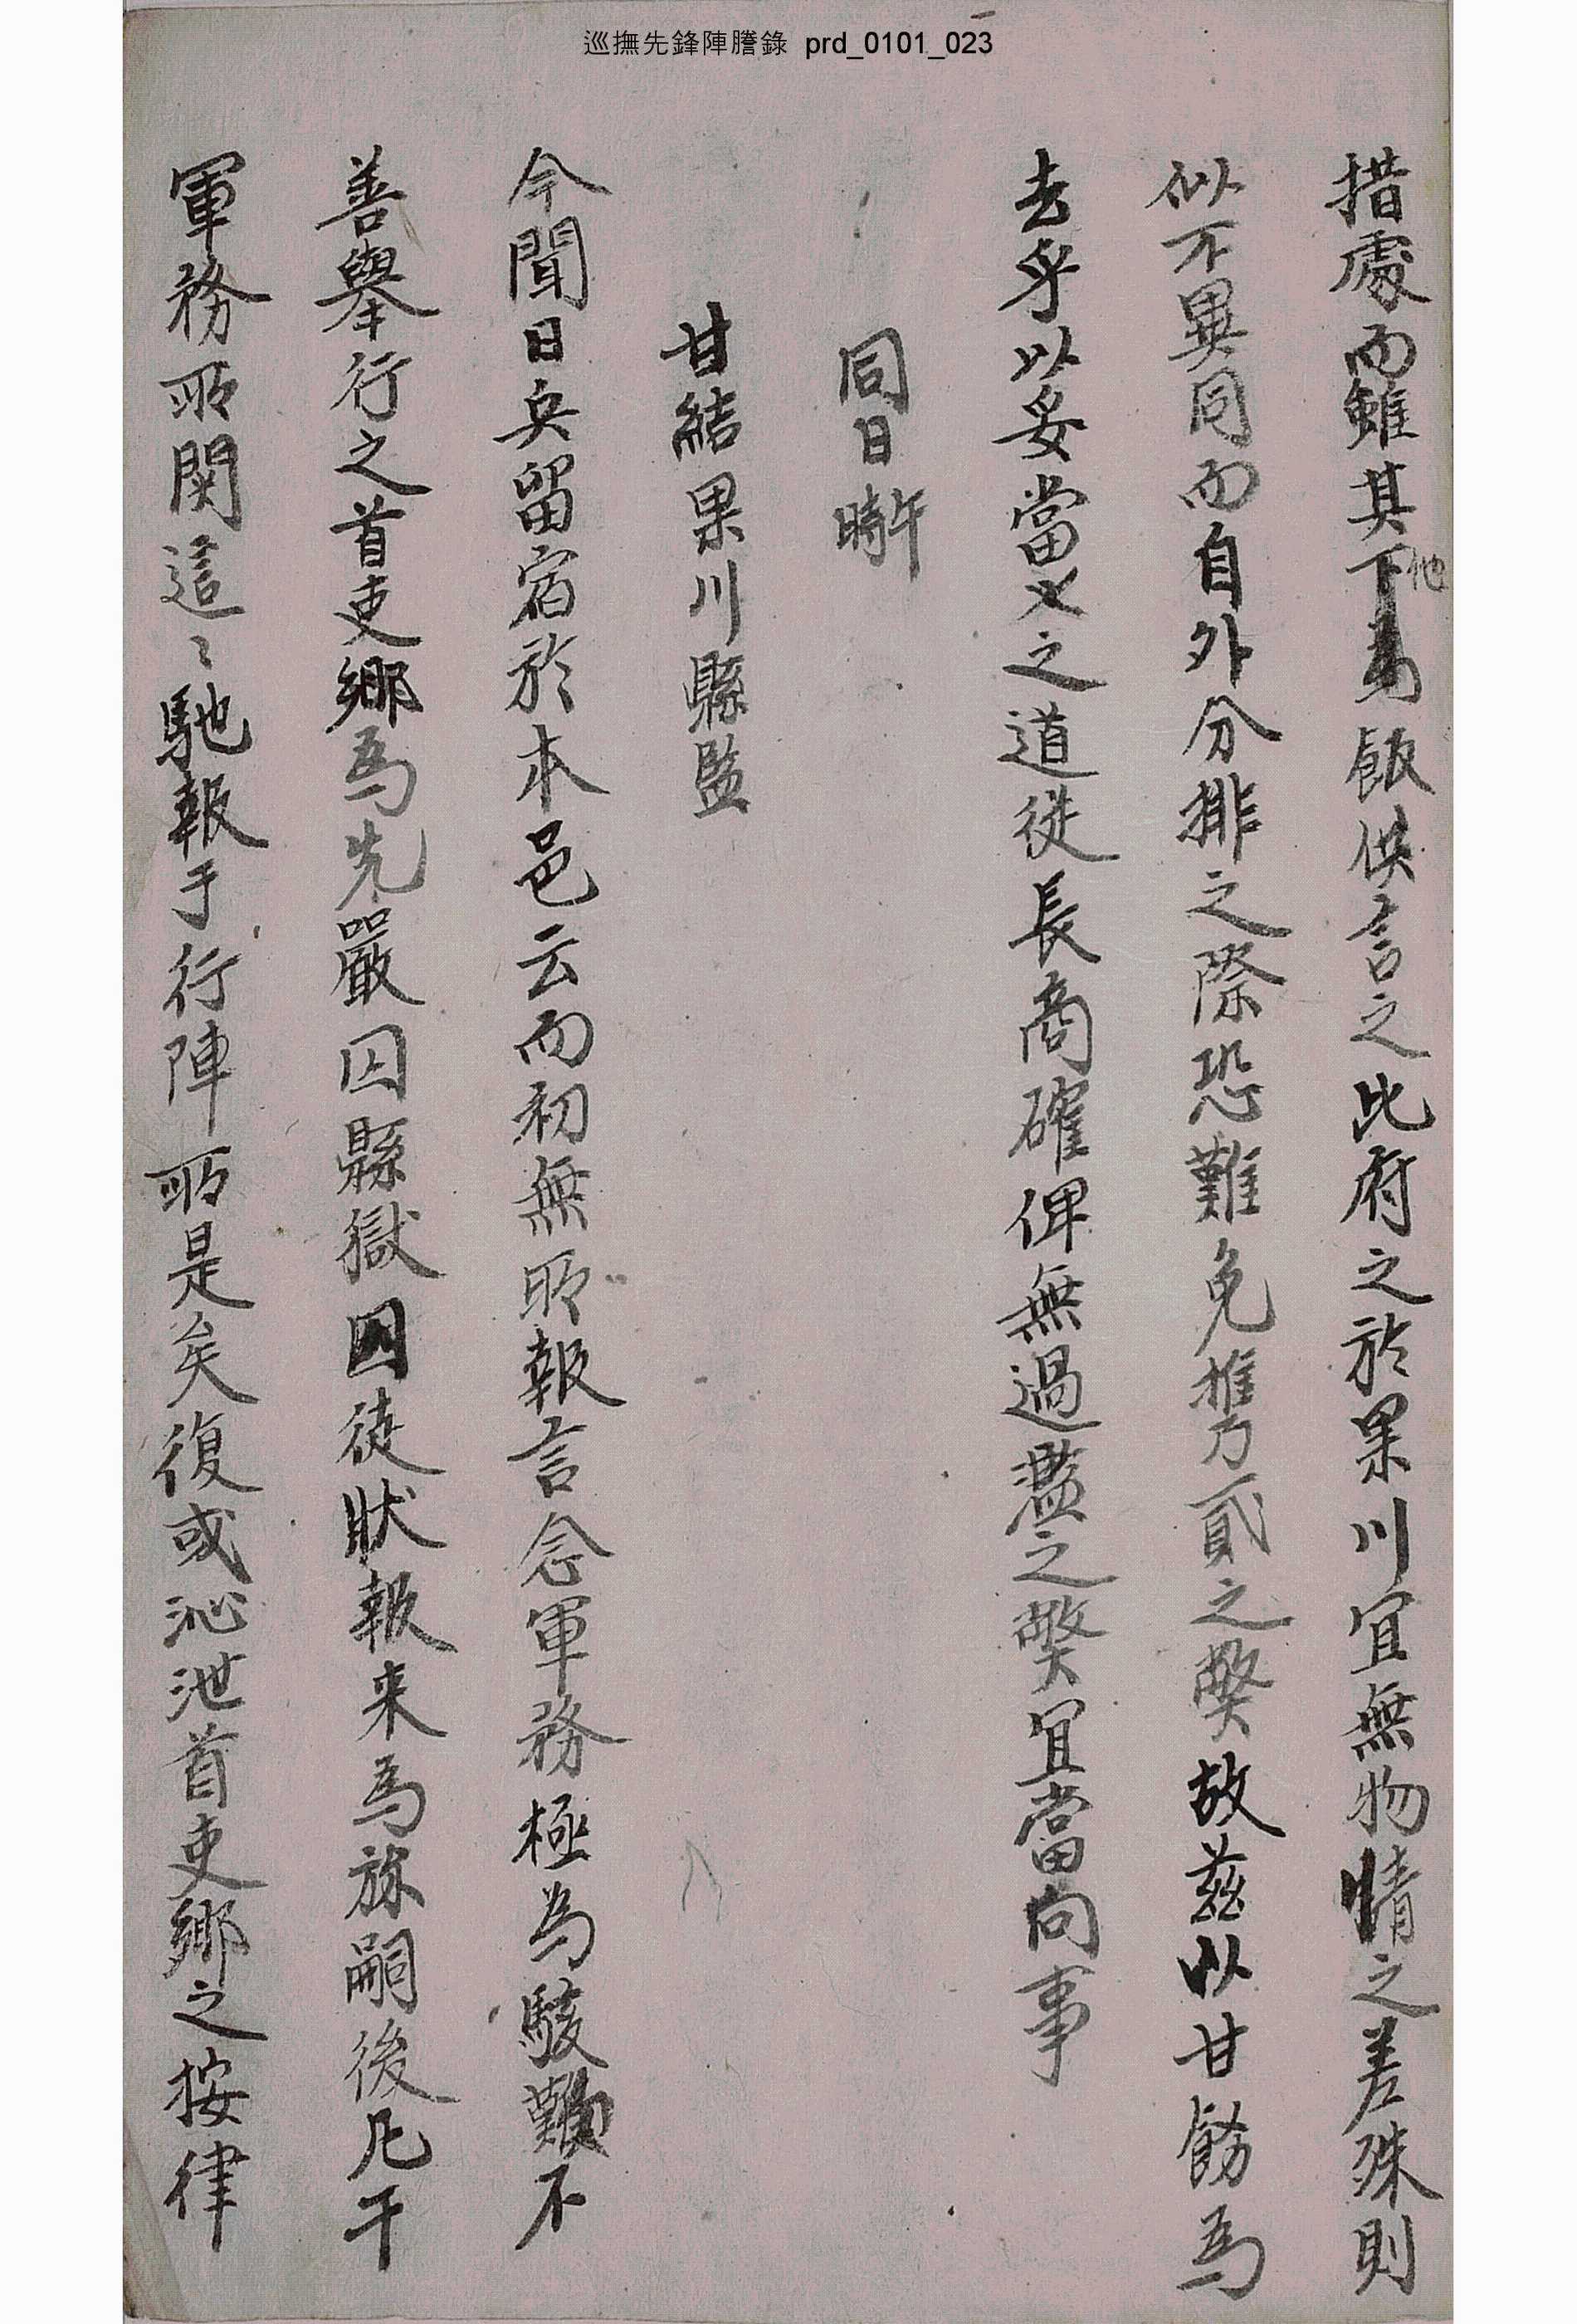 巡撫先鋒陣謄錄 prd_0101_023
措處而雖其下馬飯供言之比府之於果川宜無物情之差殊則
他
似不異同而自外分排之際恐難免携貳之弊故茲以甘飭爲
去乎以妥當之道從長商確俾無過濫之弊宜當向事
同日午時
甘結果川縣監
今聞日兵留宿於本邑云而初無所報言念軍務極爲駭歎不
善擧行之首吏鄕爲先嚴囚縣獄囚徒狀報来爲旀嗣後凡干
軍務所関這〻馳報于行陣所是矣復或泌泄首吏鄕之按律